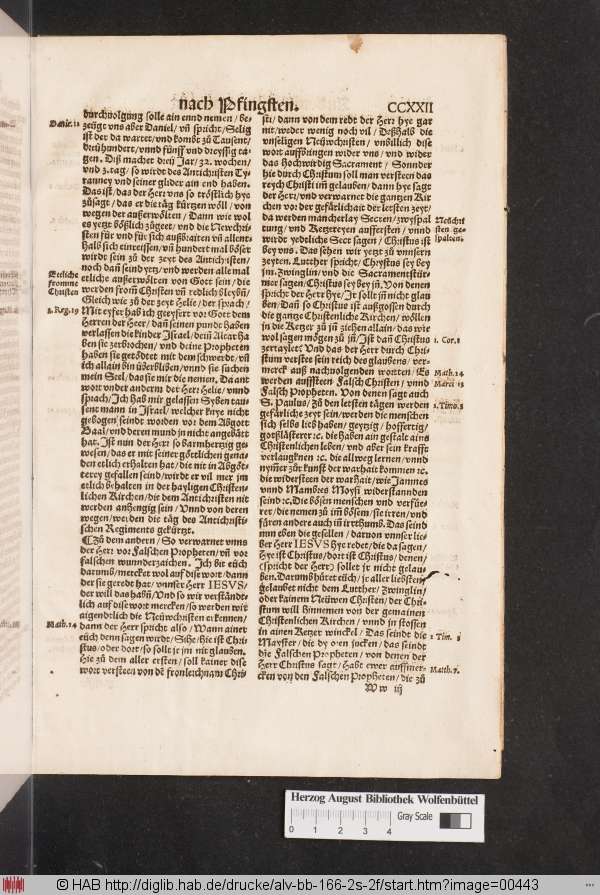 nach Pfingsten.
CCXXII
Danie. 12
durchuolgung solle ain ennd nemen / be-
zeügt vns aber Daniel / vñ spricht / Selig
ist der da wartet / vnd kombt zů Tausent /
dreühundert / vnnd fünff vnd dreyssig tä-
gen. Diß machet dreü Jar / 32. wochen /
vnd 3. tag / so wirdt des Antichristen Ty-
ranney vnd seiner glider ain end haben.
Das ist / das der Herr vns so tröstlich hye
zůsagt / das er die täg kürtzen wöll / von
wegen der außerwölten / Dann wie wol
es yetzt bößlich zůgeet / vnd die Newchri-
sten für vnd für sich außbraiten vñ allent-
halb sich einreissen / vñ hundert mal böser
wirdt sein zů der zeyt des Antichristen /
noch dañ seind yetz / vnd werden alle mal
Etliche
fromme
Christen
etliche außerwölten von Gott sein / die
werden from̃ Christen vñ redlich bleybñ /
Gleich wie zů der zeyt Helie / der sprach /
3. Reg. 19
Mit eyfer hab ich geeyfert vor Gott dem
Herren der Heer / dañ seinen pundt haben
verlassen die kinder Israel / dein Altar ha
ben sie zerbrochen / vnd deine Propheten
haben sie getödtet mit dem schwerdt / vñ
ich allain bin überblibẽ / vnnd sie sůchen
mein Seel / das sie mir die nemen. Da ant
wort vnder anderm der Herr Helie / vnnd
sprach / Ich hab mir gelassen Syben tau-
sent mann in Israel / welcher knye nicht
gebogen seindt worden vor dem Abgott
Baal / vnd deren mund jn nicht angebätt
hat. Ist nun der Herr so barmhertzig ge-
wesen / das er mit seiner götlichen gena-
den etlich erhalten hat / die nit in Abgöt-
terey gefallen seind / wirdt er vil mer jm
etlich behalten in der hayligen Christen-
lichen Kirchen / die dem Antichristen nit
werden anhengig sein / Vnnd von deren
wegen / werden die täg des Antichristi-
schen Regiments gekürtzt.
Zů dem anderen / So verwarnet vnns
der Herr vor Falschen Propheten / vñ vor
falschen wunnderzaichen. Ich bit eüch
darumb / mercket wol auf dise wort / dann
der sie geredt hat / vnnser Herr IESVS /
der will das habñ / Vnd so wir verständt-
lich auf dise wort mercken / so werden wir
aigendtlich die Neüwchristen erkennen /
Math. 24
dann der Herr spricht also / Wann ainer
eüch denn sagen wirdt / Sihe / hie ist Chri
stus / oder dort / so solle jr jm nit glauben.
Hie zů dem aller ersten / soll kainer dise
wort versteen von dẽ fronleichnam Chri
sti / dann von dem redt der Herr hye gar
nit / weder wenig noch vil / Deßhalb die
vnseligen Neüwchristen / vnbillich dise
wort auffbringen wider vns / vnd wider
das Hochwirdig Sacrament / Sonnder
hie durch Christum soll man versteen das
reych Christi iñ gelauben / dann hye sagt
der Herr / vnd verwarnet die gantzen Kir
chen vor der gefärlichait der letsten zeyt /
da werden mancherlay Secten / zwyspal
Neüchri
sten ge-
spalten.
tung / vnd Ketzereyen aufferstẽ / vnnd
wirdt yedeliche Sect sagen / Christus ist
bey vns. Das sehen wir yetzt zů vnnsern
zeyten. Lutther spricht / Chrystus sey bey
jm. Zwinglin / vnd die Sacramentstür-
mer sagen / Christus sey bey jñ. Von denen
spricht der Herr hye / Jr solle jñ nicht glau
ben / Dañ so Christus ist außgossen durch
die gantze Christenliche Kirchen / wöllen
jn die Ketzer zů jñ ziehen allain / das wie
wol sagen mögen zů jñ / Ist dañ Christus
1. Cor. 1
zertraylet? Vnd das der Herr durch Chri-
stum verstee sein reich des glaubens / ver-
merck auß nachuolgenden worten / Es
Math. 24
werden auffsteen Falsch Christen / vnnd
Marci 13
Falsch Propheten. Von denen sagt auch
S. Paulus / Zů den letsten tägen werden
2. Timo. 3
gefärliche zeyt sein / werden die menschen
sich selbs lieb haben / geytzig / hoffertig /
gotßlästerer ꝛc. die haben ain gestalt ains
Christenlichen leben / vnd aber sein krafft
verlaugknen ꝛc. die allweg lernen / vnnd
nym̃er zůr kunst der warhait kommen ꝛc.
die widersteen der warhait / wie Jannes
vnnd Mambres Moysi widerstannden
seind ꝛc. Die bösen menschen / vnd verfüe-
rer / die nemen zů iñ bösem / sie irren / vnd
füren andere auch iñ irrthumb. Das seind
nun eben die gesellen / daruon vnnser lie-
ber Herr IESVS hye redet / die da sagen /
Hye ist Christus / dort ist Christus / denen /
(spricht der Herr) sollet jr nicht gelau-
ben. Darumb hüret eüch / jr aller liebsten
gelaubet nicht dem Luther / Zwinglin /
oder kainem Neüwen Christen / der Chri-
stum will hinnemen von der gemainen
Christenlichen Kirchen / vnnd jn stossen
in ainen Ketzer winckel / Das seind die
2. Tim. 3
Mayster / die dy oren jucken / das seindt
die Falschen Propheten / von denen der
Herr Christus sagt / Habt ewer auffmer-
Matth. 7.
cken von den Falschen Propheten / die zů
Ww iij
Herzog August Bibliothek Wolfenbüttel
0 1 2 3 4
Gray Scale
© HAB http://diglib.hab.de/drucke/alv-bb-166-2s-2f/start.htm?image=00443